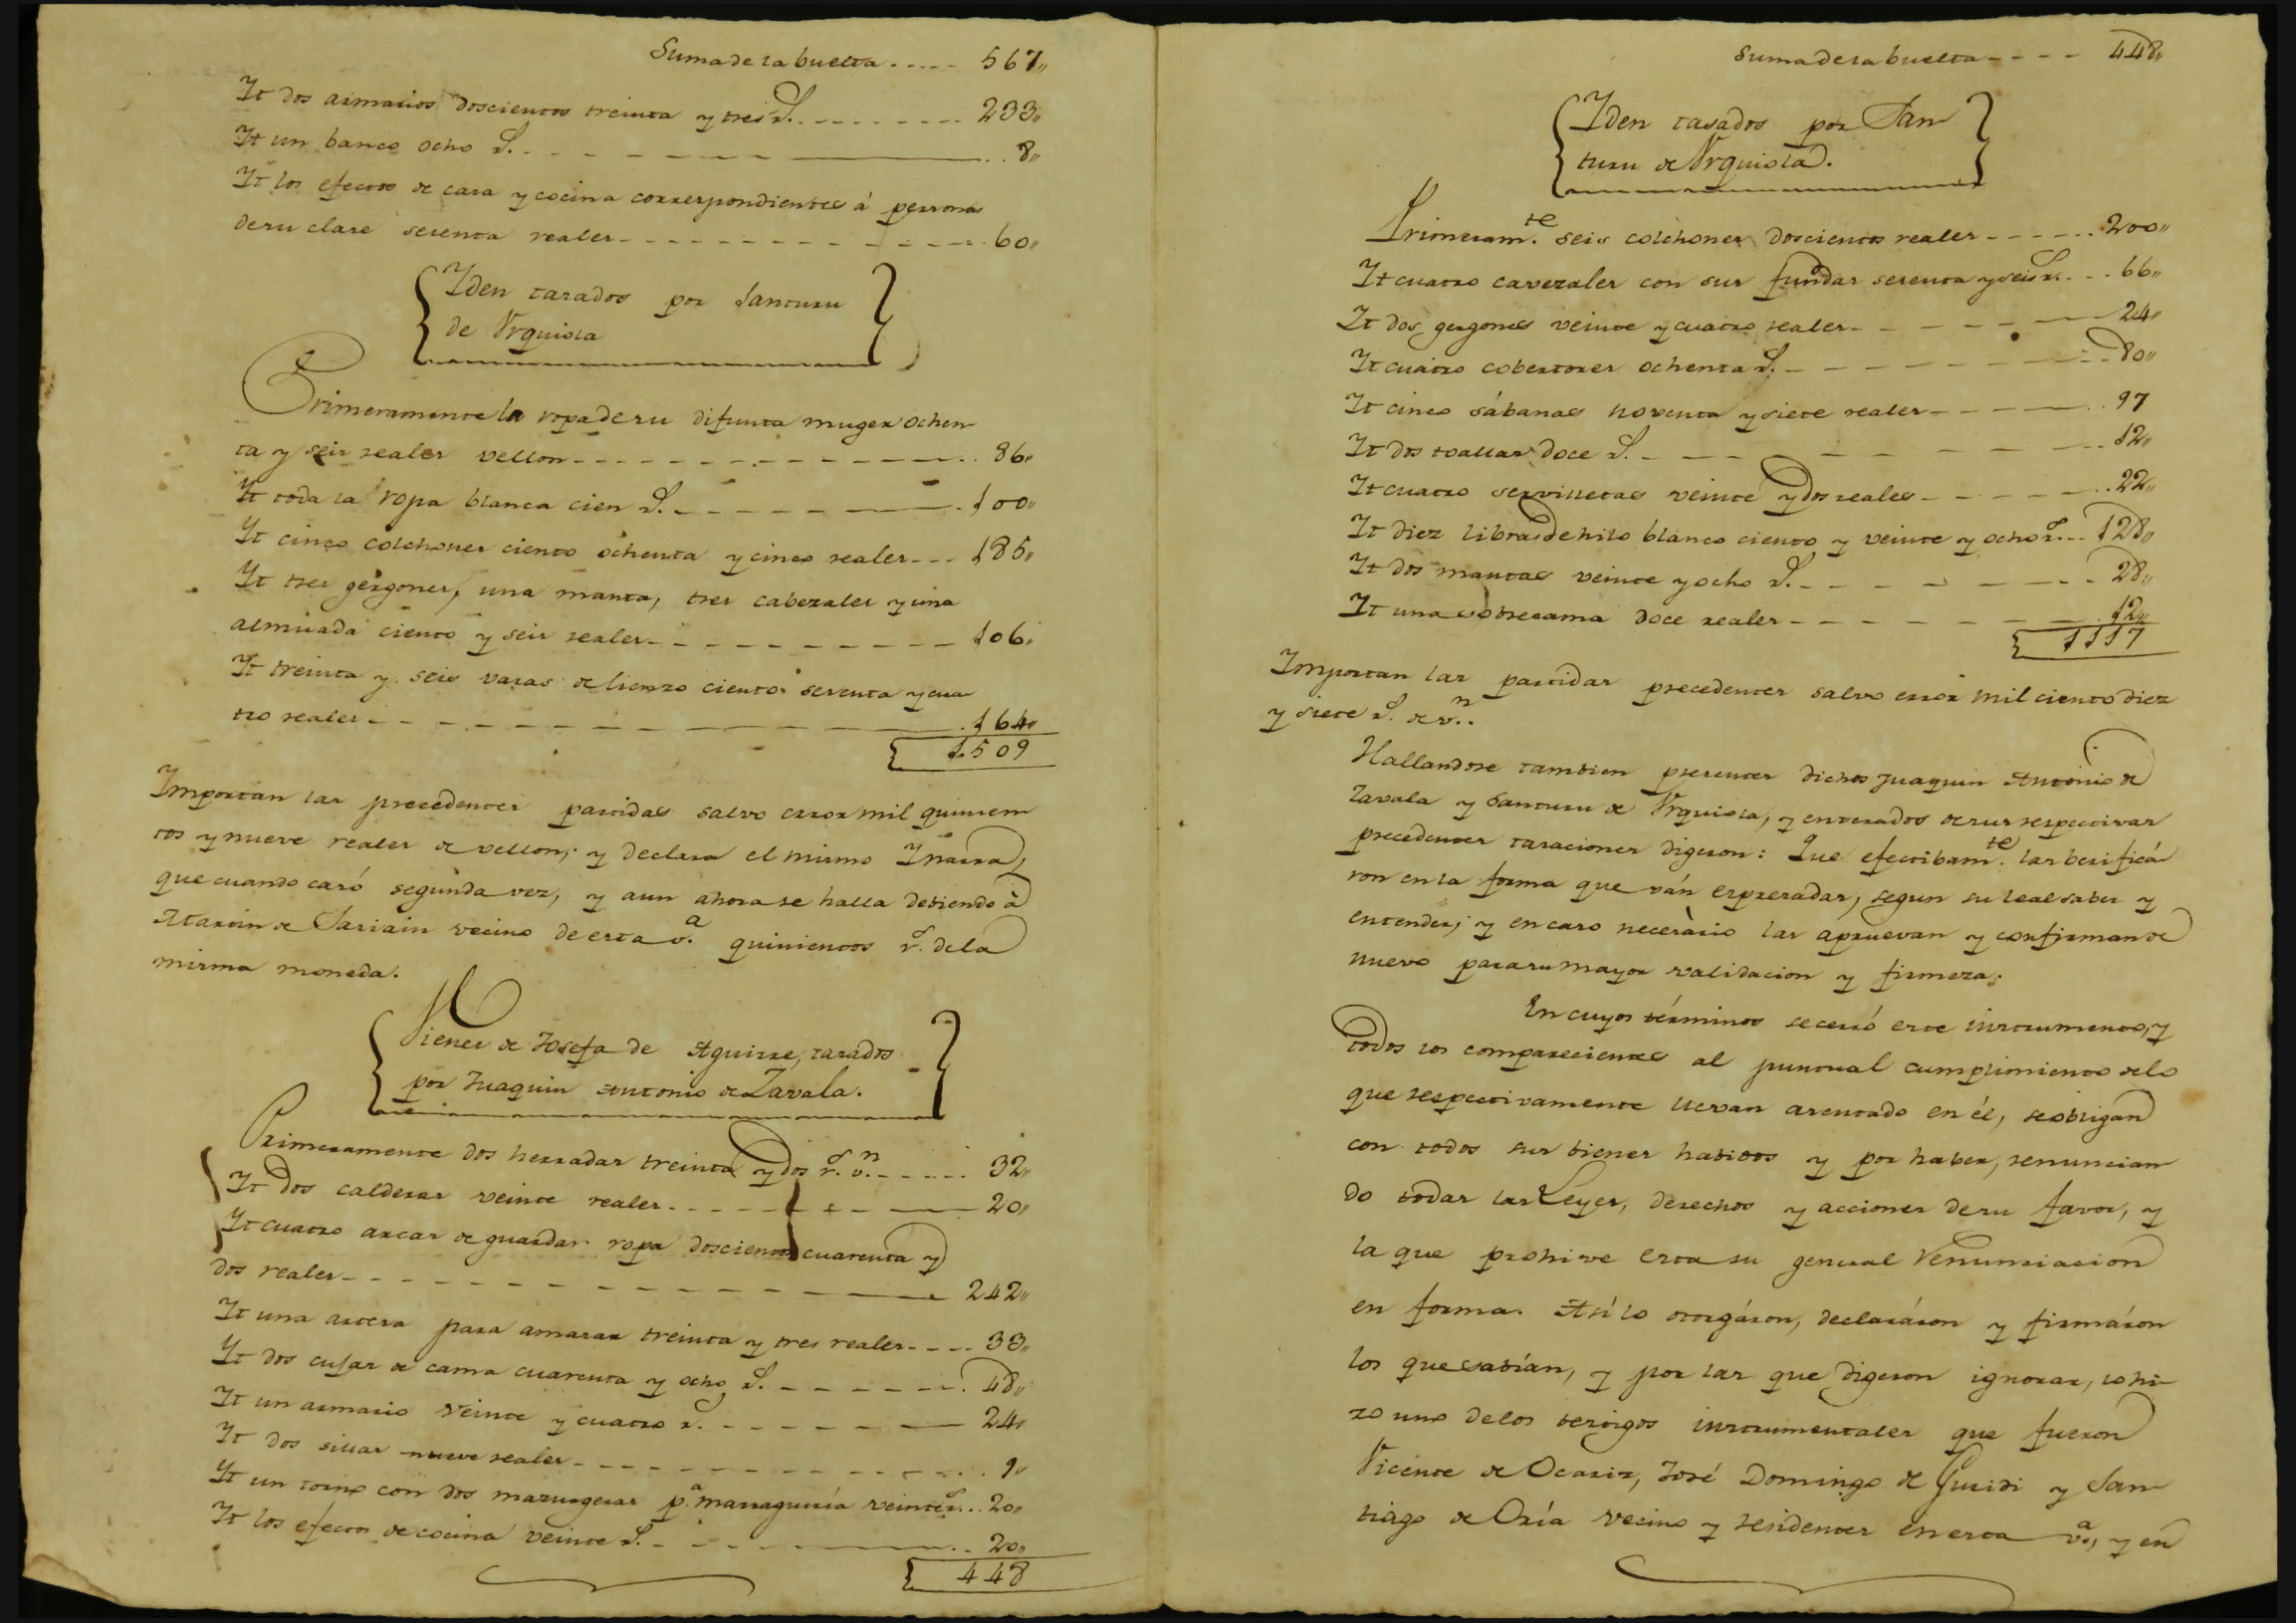 Suma de la buelta ..... 567,,
It dos armarios doscientos treinta y tres r.s .......... 233,,
It un banco ocho r.s ......... 8,,
It los efectos de casa y cocina correspondientes á personas
de su clase sesenta reales ............. 60,,
Iden tasados por Santuru
de Vrquiola
Primeramente la ropa de su difunta muger ochen
ta y seis reales vellon ............ 86,,
It toda la ropa blanca cien r.s ......... 100,,
It cinco colchones ciento ochenta y cinco reales ... 185,,
It tres gergones, una manta, tres cabezales y una
almuada ciento y seis reales .......... 106,,
It treinta y seis varas de lienzo ciento sesenta y cua
tro reales ............ 164,,
1.509
Importan las precedentes partidas salvo error mil quinien
tos y nueve reales de vellon; y declara el mismo Ynarra,
que cuando casó segunda vez, y aun ahora se halla debiendo à
Martin de Sariain vecino de esta v.a quinientos r.s de la
misma moneda.
Vienes de Josefa de Aguirre, tasados
por Juaquin Antonio de Zavala.
Primeramente dos herradas treinta y dos r.s v.n ...... 32,,
It dos calderas veinte reales ......... 20,,
It cuatro arcas de guardar ropa doscientos cuarenta y
dos reales ............ 242,,
It una artesa para amasar treinta y tres reales .... 33,,
It dos cujas de cama cuarenta y ocho r.s ........ 48,,
It un armario veinte y cuatro r.s ........ 24,,
It dos sillas nueve reales ............ 9,,
It un torno con dos mazurgeras p.a marragueria veinte r.s ... 20,,
It los efectos de cocina veinte r.s ......... 20,,
448
Suma de la buelta .... 448,,
Iden tasados por San
turu de Vrquiola.
Primeram.te seis colchones doscientos reales ...... 200,,
It cuatro cavezales con sus fundas sesenta y seis r.s ... 66,,
It dos gergones veinte y cuatro reales ........ 24,,
It cuatro cobertores ochenta r.s ......... 80,,
It cinco sábanas noventa y siete reales ...... 97
It dos toallas doce r.s .......... 12,,
It cuatro servilletas veinte y dos reales ....... 22,,
It diez libras de hilo blanco ciento y veinte y ocho r.s ... 128,,
It dos mantas veinte y ocho r.s ........ 28,,
It una sobrecama doce reales ......... 12,,
1117
Importan las partidas precedentes salvo error mil ciento diez
y siete r.s de v.n.
Hallandose tambien presentes dichos Juaquin Antonio de
Zavala y Santuru de Vrquiola, y enterados de sus respectivas
precedentes tasaciones digeron: Que efectibam.te las berificá
ron en la forma que ván espresadas, segun su leal saber y
entender; y en caso necesàrio las apruevan y confirman de
nuevo para su mayor validacion y firmeza.
En cuyos términos se cerró este instrumento, y
todos los comparecientes al puntual cumplimiento de lo
que respectivamente llevan asentado en él, se obligan
con todos sus bienes habidos y por haber, renuncian
do todas las Leyes, derechos y acciones de su favor, y
la que prohive esta su general renunciacion
en forma. Así lo otorgáron, declaráron y firmáron
los que sabían, y por las que digeron ignorar, lo hi-
zo uno de los testigos instrumentales que fueron
Vicente de Ocariz, José Domingo de Guridi y San
tiago de Oría vecino y residentes en esta v.a, y en